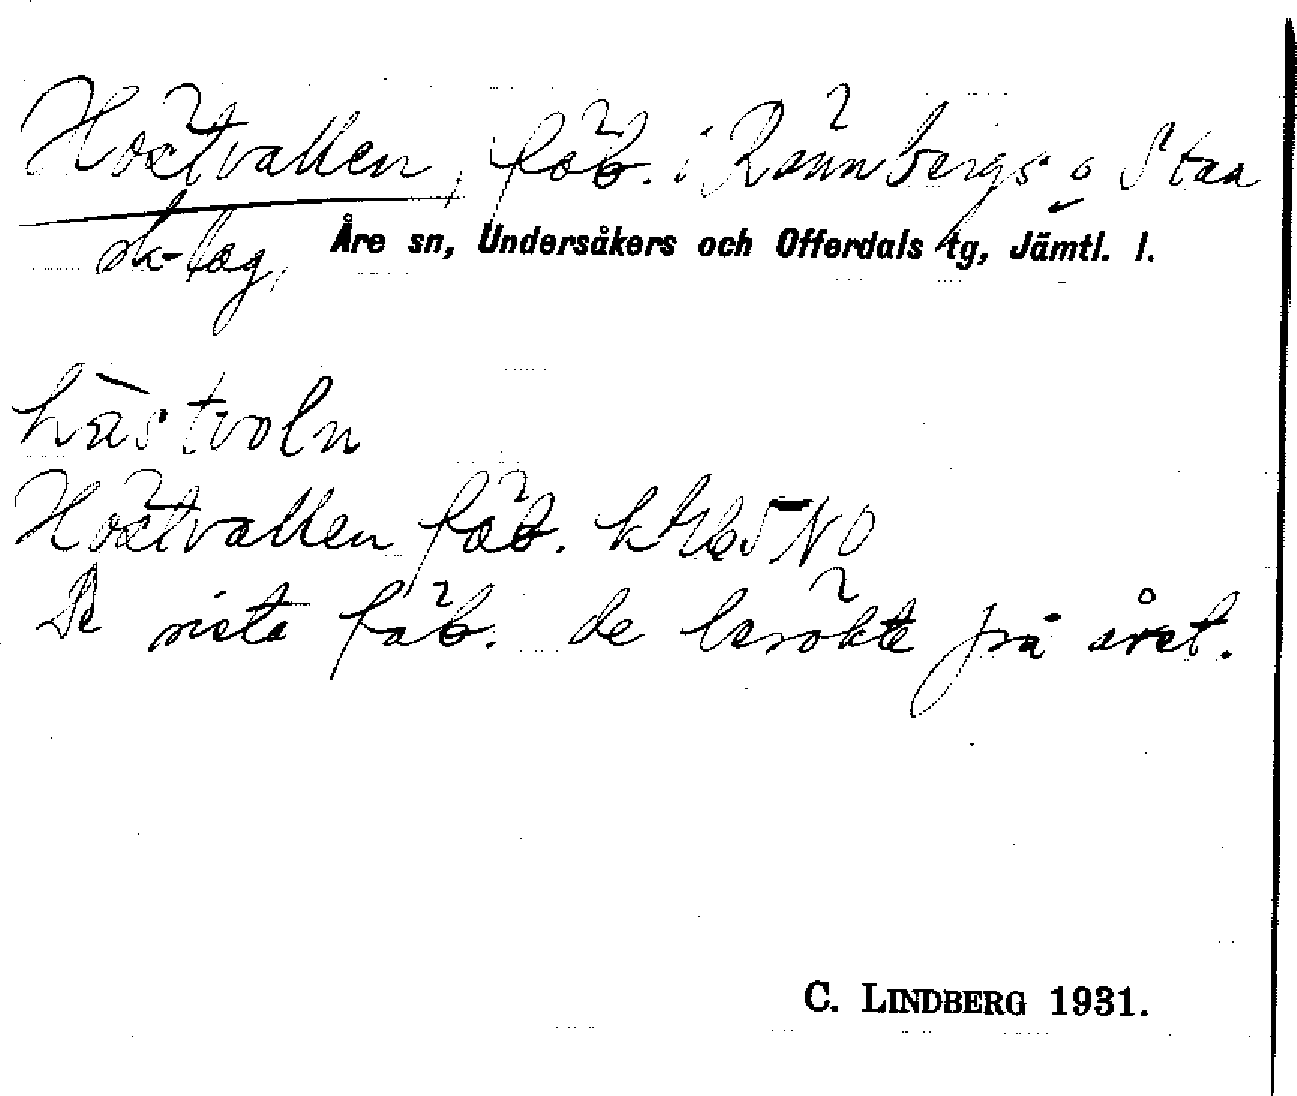 Höstvallen, fäb. i Rännbergs o Staa
sk-lag,
Åre sn, Undersåkers och Offerdals tg, Jämtl. l.
hästvoln
Höstvallen fäb. NO
De sista fäb. de besökte på året.
C. LINDBERG 1931.